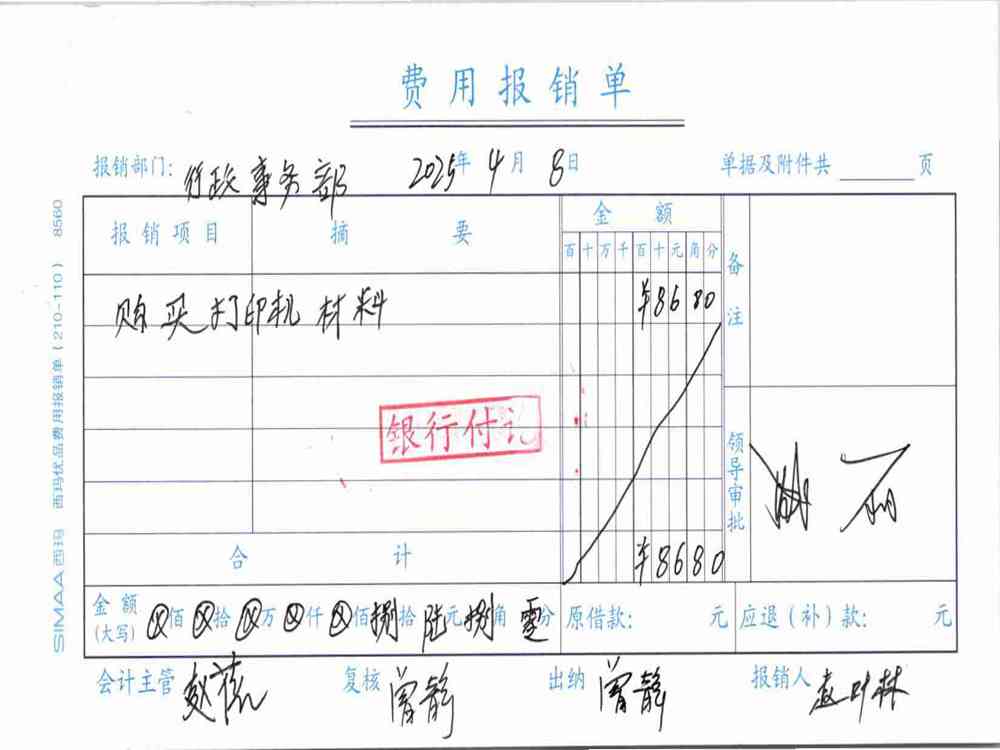 费用报销单
报销部门: 行政事务部 2025年 4月 8日 单据及附件共 页
报销项目 摘要 金额 备注
百十万千百十元角分
购买打印机材料 ¥8680
银行付讫
领导审批
合计 ¥8680
金额(大写) ⊗佰⊗拾⊗万⊗仟⊗佰捌拾陆元捌角零分 原借款: 元 应退(补)款: 元
会计主管 复核 曾静 出纳 曾静 报销人
SIMAA西玛 西玛优品费用报销单(210-110) 8560